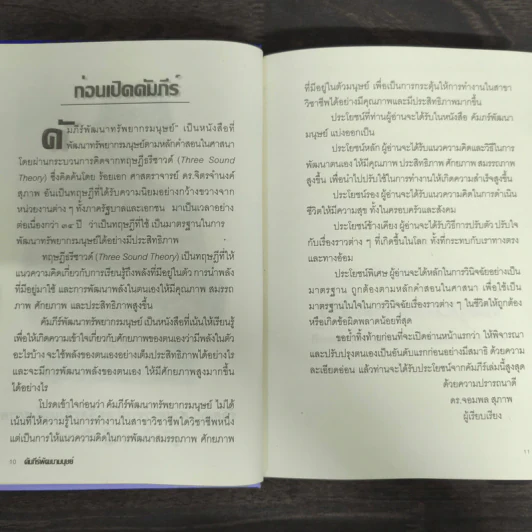 ก่อนเปิดคัมภีร์
คัมภีร์พัฒนาทรัพยากรมนุษย์" เป็นหนังสือที่
พัฒนาทรัพยากรมนุษย์ตามหลักคำสอนในศาสนา
โดยผ่านกระบวนการคิดจากทฤษฎีธรีซาวด์ (Three Sound
Theory) ซึ่งคิดค้นโดย ร้อยเอก ศาสตราจารย์ ดร.จิตรจำนงค์
สุภาพ อันเป็นทฤษฎีที่ได้รับความนิยมอย่างกว้างขวางจาก
หน่วยงานต่าง ๆ ทั้งภาครัฐบาลและเอกชน มาเป็นเวลาอย่าง
ต่อเนื่องกว่า ๓๔ ปี ว่าเป็นทฤษฎีที่ใช้ เป็นมาตรฐานในการ
พัฒนาทรัพยากรมนุษย์ได้อย่างมีประสิทธิภาพ
ทฤษฎีธรีซาวด์ (Three Sound Theory) เป็นทฤษฎีที่ให้
แนวความคิดเกี่ยวกับการเรียนรู้ถึงพลังที่มีอยู่ในตัว การนำพลัง
ที่มีอยู่มาใช้ และการพัฒนาพลังในตนเองให้มีคุณภาพ สมรรถ
ภาพ ศักยภาพ และประสิทธิภาพสูงขึ้น
คัมภีร์พัฒนาทรัพยากรมนุษย์ เป็นหนังสือที่เน้นให้เรียนรู้
เพื่อให้เกิดความเข้าใจเกี่ยวกับศักยภาพของตนเองว่ามีพลังในตัว
อะไรบ้าง จะใช้พลังของตนเองอย่างเต็มประสิทธิภาพได้อย่างไร
และจะมีการพัฒนาพลังของตนเอง ให้มีศักยภาพสูงมากขึ้น
ได้อย่างไร
โปรดเข้าใจก่อนว่า คัมภีร์พัฒนาทรัพยากรมนุษย์ ไม่ได้
เน้นที่ให้ความรู้ในการทำงานในสาขาวิชาชีพใดวิชาชีพหนึ่ง
แต่เป็นการให้แนวความคิดในการพัฒนาสมรรถภาพ ศักยภาพ
10 คัมภีร์พัฒนามนุษย์
ที่มีอยู่ในตัวมนุษย์ เพื่อเป็นการกระตุ้นให้การทำงานในสาขา
วิชาชีพได้อย่างมีคุณภาพและมีประสิทธิภาพมากขึ้น
ประโยชน์ที่ท่านผู้อ่านจะได้รับในหนังสือ คัมภร์พัฒนา
มนุษย์ แบ่งออกเป็น
ประโยชน์หลัก ผู้อ่านจะได้รับแนวความคิดและวิธีในการ
พัฒนาตนเอง ให้มีคุณภาพ ประสิทธิภาพ ศักยภาพ สมรรถภาพ
สูงขึ้น เพื่อนำไปปรับใช้ในการทำงานให้เกิดความสำเร็จสูงขึ้น
ประโยชน์รอง ผู้อ่านจะได้รับแนวความคิดในการดำเนิน
ชีวิตให้มีความสุข ทั้งในครอบครัวและสังคม
ประโยชน์ข้างเคียง ผู้อ่านจะได้รับวิธีการปรับตัว ปรับใจ
กับเรื่องราวต่าง ๆ ที่เกิดขึ้นในโลก ทั้งที่กระทบกับเราทางตรง
และทางอ้อม
ประโยชน์พิเศษ ผู้อ่านจะได้หลักในการวินิจฉัยอย่างเป็น
มาตรฐาน ถูกต้องตามหลักคำสอนในศาสนา เพื่อใช้เป็น
มาตรฐานในใจในการวินิจฉัยเรื่องราวต่าง ๆ ในชีวิตให้ถูกต้อง
หรือเกิดข้อผิดพลาดน้อยที่สุด
ขอย้ำทิ้งท้ายก่อนที่จะเปิดอ่านหน้าแรกว่า ให้พิจารณา
และปรับปรุงตนเองเป็นอันดับแรกก่อนอย่างมีสมาธิ ด้วยความ
ละเอียดอ่อน แล้วท่านจะได้รับประโยชน์จากคัมภีร์เล่มนี้สูงสุด
ด้วยความปรารถนาดี
ดร.จอมพล สุภาพ
ผู้เรียบเรียง
11